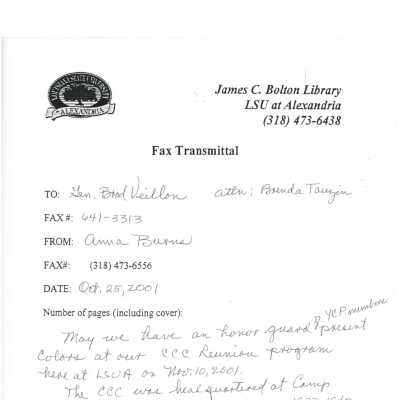 LOUISIANA STATE UNIVERSITY
ALEXANDRIA
James C. Bolton Library
LSU at Alexandria
(318) 473-6438
Fax Transmittal
TO: Gen. Brod Veillon attn: Brenda Tauzin
FAX #: 641-3313
FROM: Anna Burns
FAX#: (318) 473-6556
DATE: Oct. 25, 2001
Number of pages (including cover):
of YCP members
May we have an honor guard present
Colors at our CCC Reunion program
here at LSUA on Nov. 10, 2001.
The CCC was headquartered at Camp